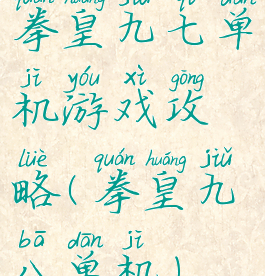 quán huáng jiǔ qī dān
拳皇九七单
jī yóu xì gōng
机游戏攻
lüè quán huáng jiǔ
略(拳皇九
bā dān jī
八单机)